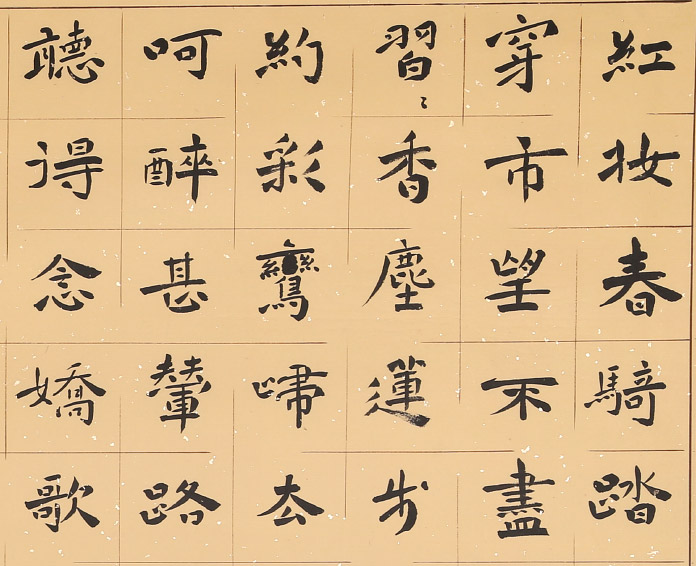 紅妝春騎踏
穿市望不盡
習〻香塵蓮步
約彩鸞歸去
呵醉甚輦路
聽得念嬌歌